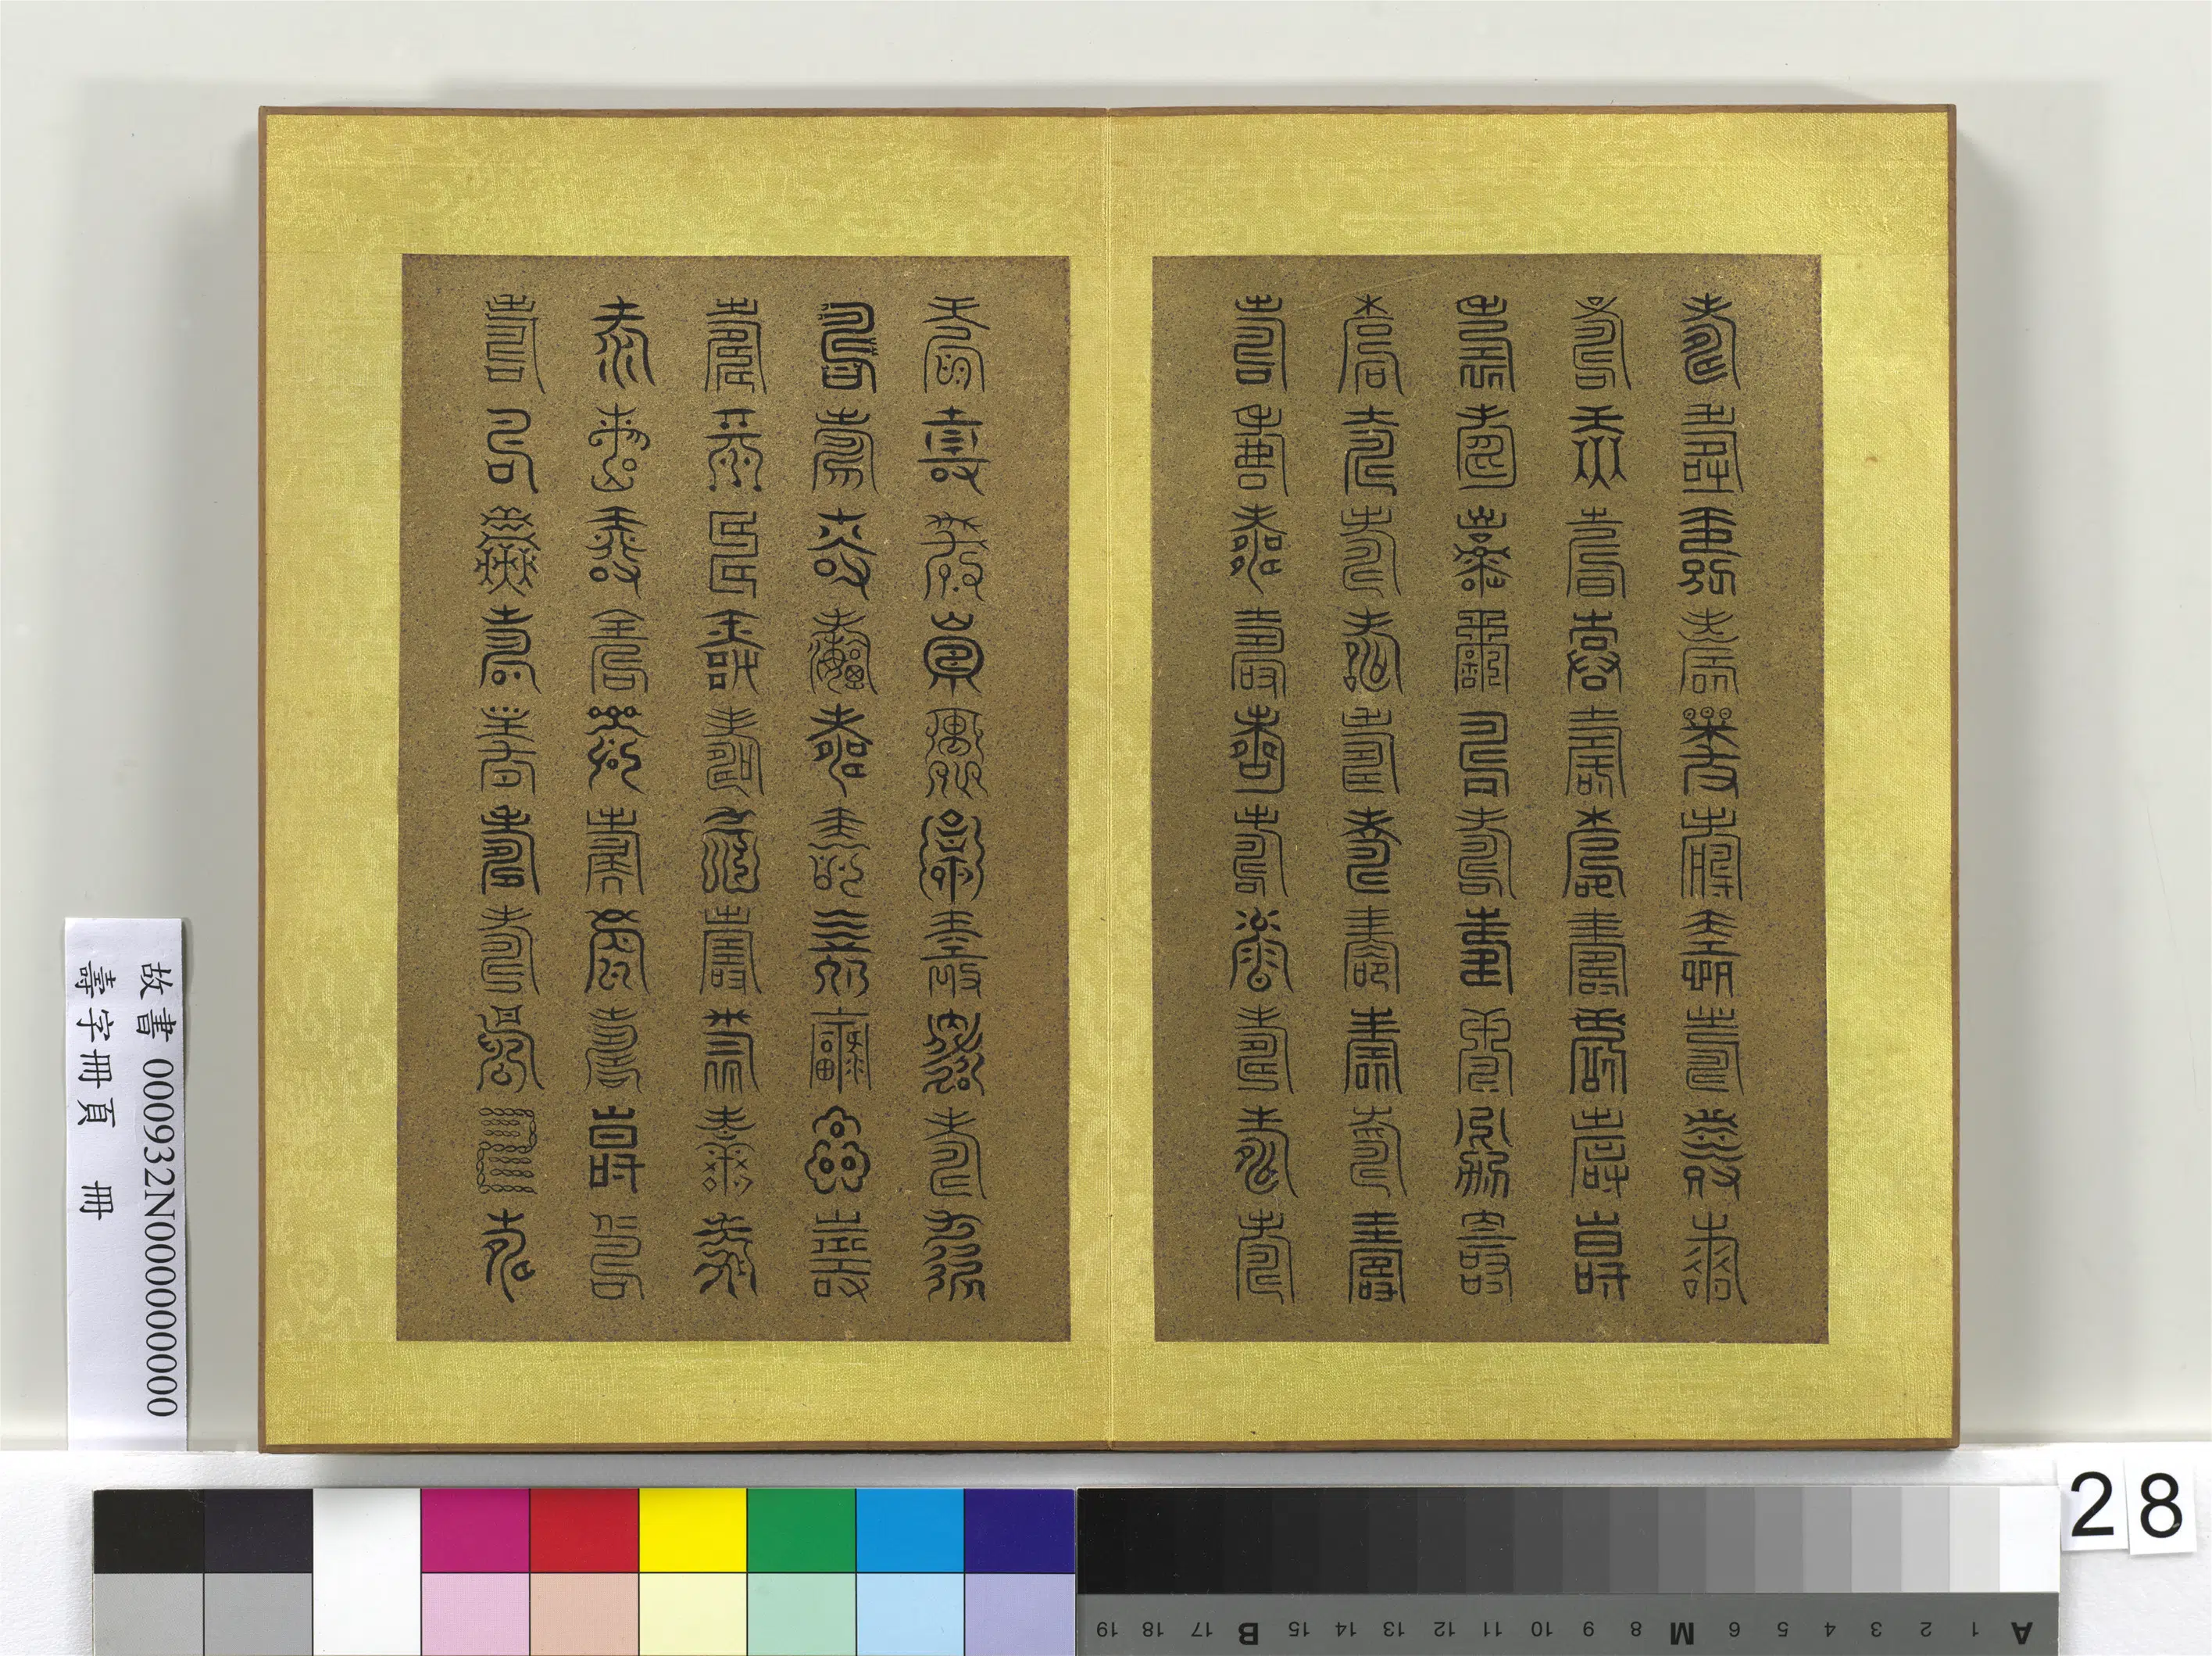 壽壽壽壽壽壽壽壽壽壽
壽壽壽壽壽壽壽壽壽壽
壽壽壽壽壽壽壽壽壽壽
壽壽壽壽壽壽壽壽壽壽
壽壽壽壽壽壽壽壽壽壽
壽壽壽壽壽壽壽壽壽壽
壽壽壽壽壽壽壽壽壽壽
壽壽壽壽壽壽壽壽壽壽
壽壽壽壽壽壽壽壽壽壽
壽壽壽壽壽壽壽壽壽壽
故書 000932N000000000
壽字冊頁 冊
28
A 1 2 3 4 5 6 M 8 9 10 11 12 13 14 15 B 17 18 19